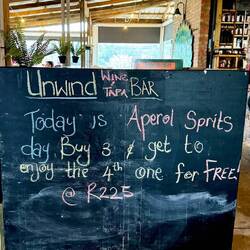 Unwind WINE & TAPA BAR
Today is Aperol Sprits
day Buy 3 & get to
enjoy the 4th one for FREE!
@ R225